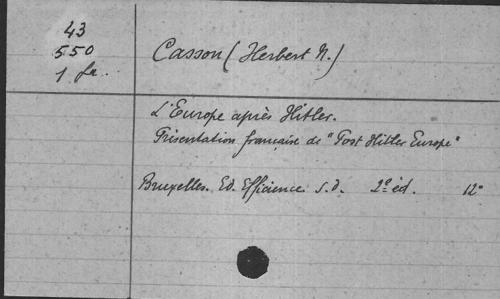 43
550
1 fr..
Casson (Herbert N.)
L'Europe après Hitler.
Présentation française de "Post Hitler Europe"
Bruxelles. Ed. Efficience s.d. 2e éd. 12°